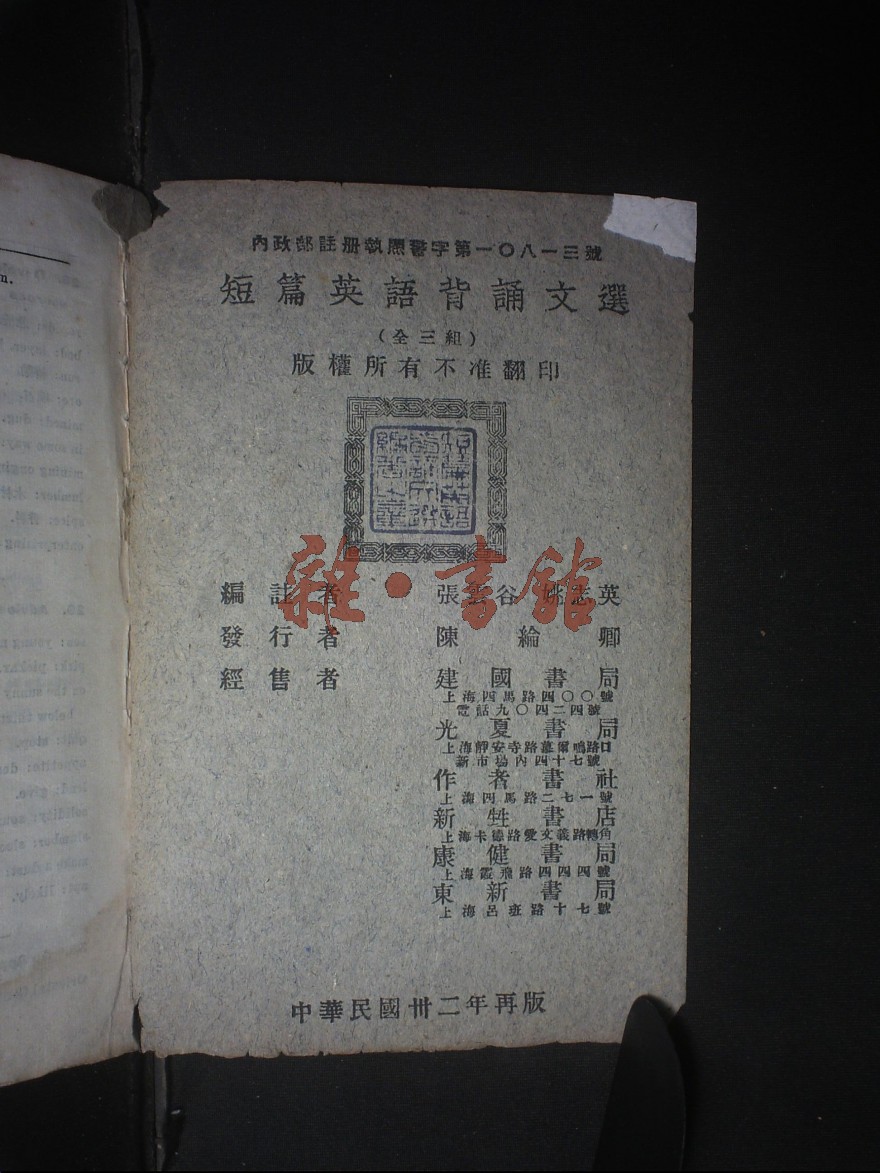 內政部註册執照警字第一〇八一三號
短篇英語背誦文選
(全三組)
版權所有不准翻印
雜·書館
編註者 張雲谷 姚志英
發行者 陳綸卿
經售者 建國書局
上海四馬路四〇〇號
電話九〇四二四號
光夏書局
上海靜安寺路慕爾鳴路口
新市場內四十七號
作者書社
上海四馬路二七一號
新甡書店
上海卡德路愛文義路轉角
康健書局
上海霞飛路四四四號
東新書局
上海呂班路十七號
中華民國卅二年再版